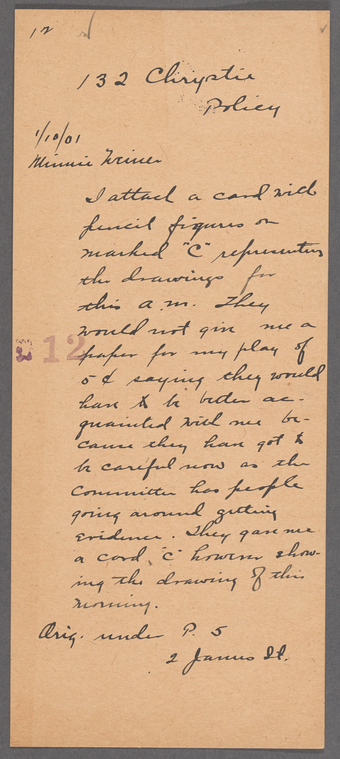 12
132 Chrystie
Policy
1/10/01
Minnie Weiner
I attach a card with
pencil figures on
marked "C" representing
the drawings for
this a.m. They
would not give me a
12
paper for my play of
5¢ saying they would
have to be better ac-
quainted with me be-
cause they have got to
be careful now as the
Committee has people
going around getting
evidence. They gave me
a card "C" however show-
ing the drawing of this
morning.
Orig. under P. 5
2 James St.